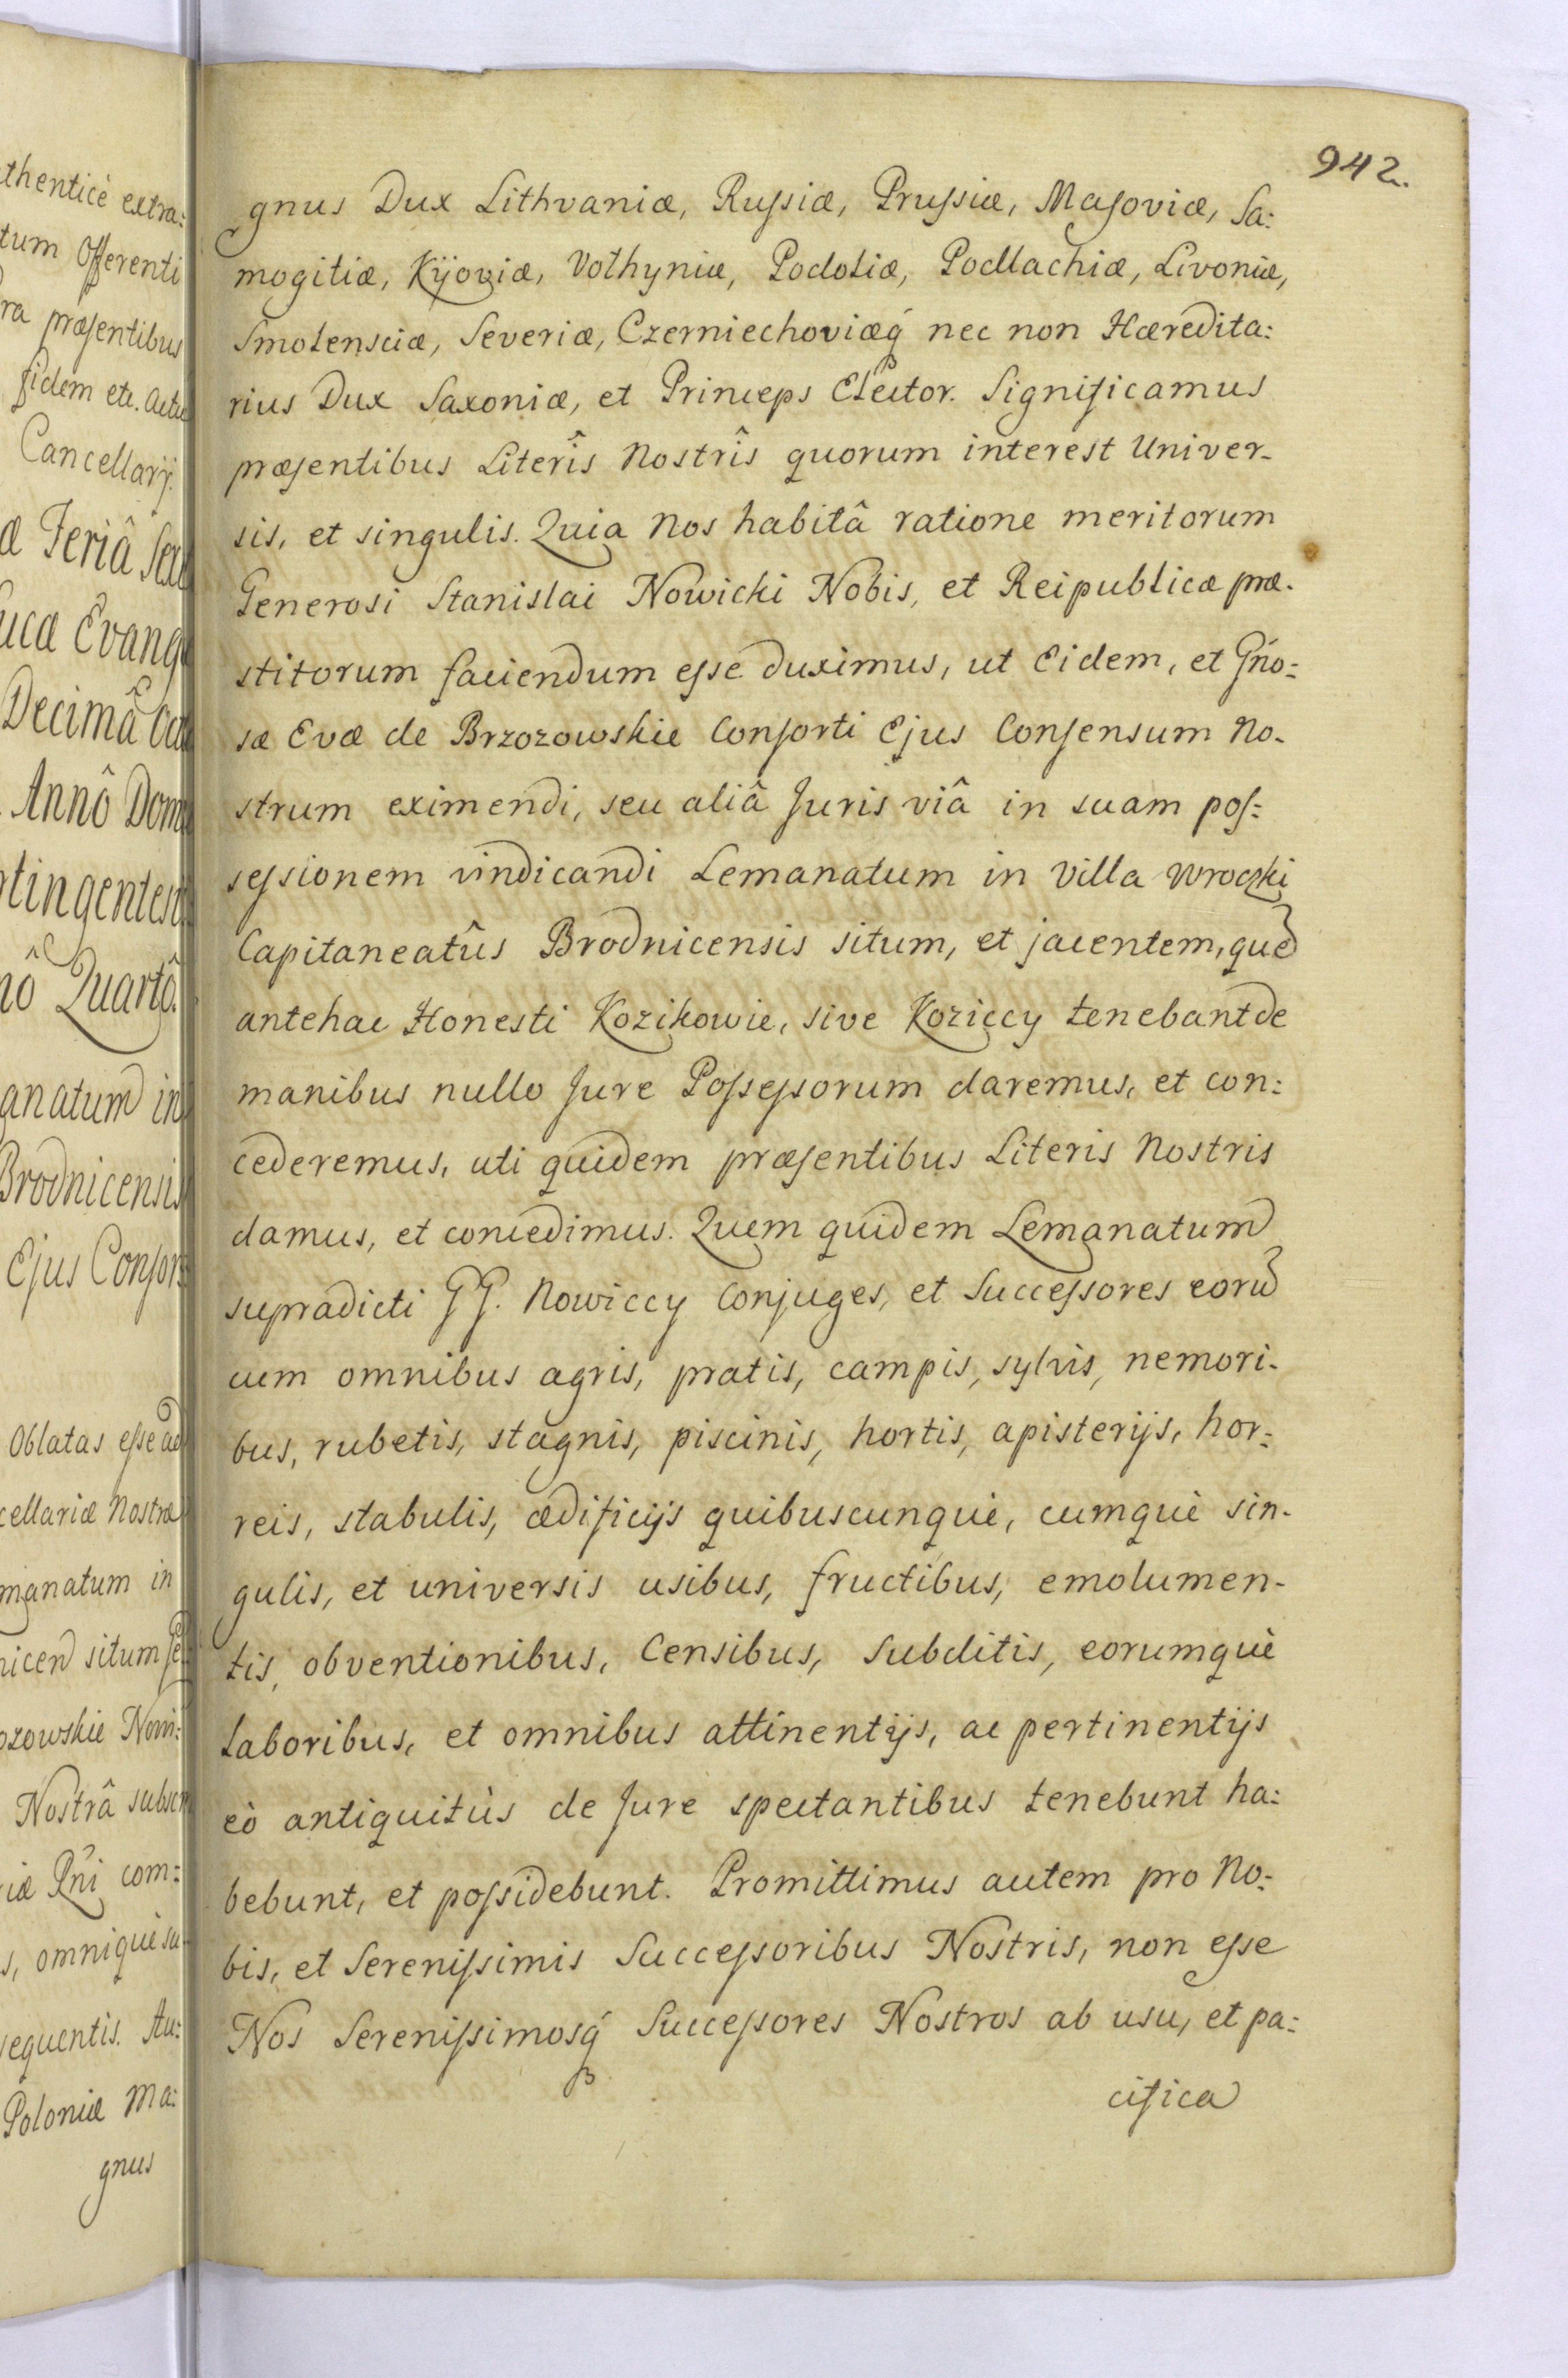 942.
gnus Dux Lithvaniæ, Russiæ, Prussiæ, Masoviæ, Sa:
mogitiæ, Kijoviæ, Volhyniæ, Podoliæ, Podlachiæ, Livoniæ,
Smolensciæ, Severiæ, Czerniechoviæq́ nec non Hæredita:
rius Dux Saxoniæ, et Princeps Elector. Significamus
præsentibus Literîs Nostrîs quorum interest Univer-
sis, et singulis. Quia Nos habitâ ratione meritorum
Generosi Stanislai Nowicki Nobis, et Reipublicæ præ-
stitorum faciendum esse duximus, ut Eidem, et Gńo:
sæ Evæ de Brzozowskie Consorti Ejus Consensum No-
strum eximendi, seu aliâ Juris viâ in suam pos:
sessionem vindicandi Lemanatum in Villa Wroczki
Capitaneatûs Brodnicensis situm, et jacentem, que͂
antehac Honesti Kozikowie, sive Koziccy tenebant de
manibus nullo Jure Possessorum daremus, et con:
cederemus, uti quidem præsentibus Literis Nostris
damus, et concedimus. Quem quidem Lemanatum
supradicti GG. Nowiccy Conjuges, et Successores eoru͂
cum omnibus agris, pratis, campis, sylvis, nemori-
bus, rubetis, stagnis, piscinis, hortis, apisterijs, hor:
reis, stabulis, ædificijs quibuscunquè, cumquè sin-
gulis, et universis usibus, fructibus, emolumen-
tis, obventionibus, Censibus, Subditis, eorumquè
Laboribus, et omnibus attinentijs, ac pertinentijs
eò antiquitùs de Jure spectantibus tenebunt ha:
bebunt, et possidebunt. Promittimus autem pro No:
bis, et Serenissimis Successoribus Nostris, non esse
Nos Serenissimosq́ Successores Nostros ab usu, et pa:
cifica
thenticè extra:
tum Offerenti
ra præsentibus
fidem etc. Actu
Cancellarij.
Decimâ
Annô Dom
tingentes
nô Quartô.
anatum in
Brodnicensis
Ejus Consor
Oblatas esse ad
cellariæ Nostræ
manatum in
situm
ozowskie Nowi:
Nostrâ subscr
iæ Rńi com:
s, omniquè su
sequentis. Au:
Poloniæ Ma:
gnus